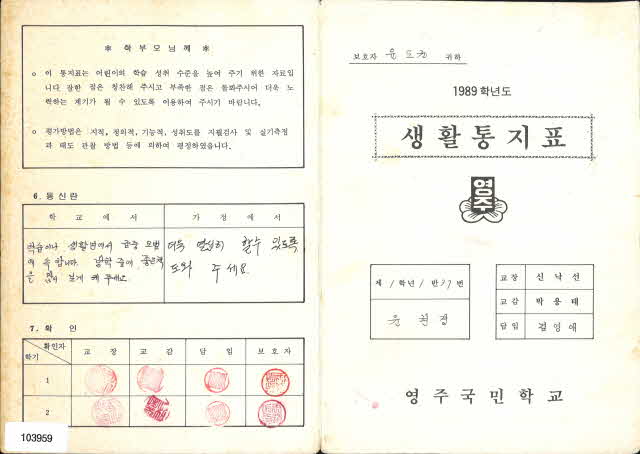 ※ 학부모님께 ※
o 이 통지표는 어린이의 학습 성취 수준을 높여 주기 위한 자료입
니다. 잘한 점은 칭찬해 주시고 부족한 점은 돌봐주시어 더욱 노
력하는 계기가 될 수 있도록 이용하여 주시기 바랍니다.
o 평가방법은 지적, 정의적, 기능적, 성취도를 지필검사 및 실기측정
과 태도 관찰 방법 등에 의하여 평정하였습니다.
6. 통신란
학교에서
가정에서
학습이나 생활면에서 금중 모범
에 속합니다. 방학 중에 좋은책
을 많이 보게 해 주세요.
더욱 열심히 할수 있도록
도와 주세요.
7. 확인
확인자
학기
교장
교감
담임
보호자
1
2
103959
보호자 윤 귀하
1989학년도
생활통지표
영주
제 1학년 1반 37번
윤
교장 신낙선
교감 박용태
담임 김영애
영주국민학교